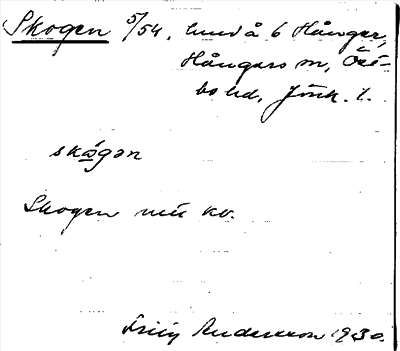 Skogen 5/54, lund å 6 Hånger,
Hångers sn, Öst-
bo hd, Jönk. l.
skógən
Skogen nu kv.
Andersson 1930.